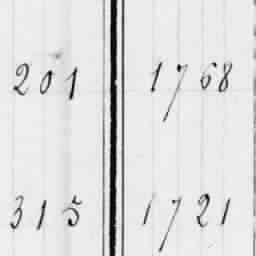 201 1768
315 1721